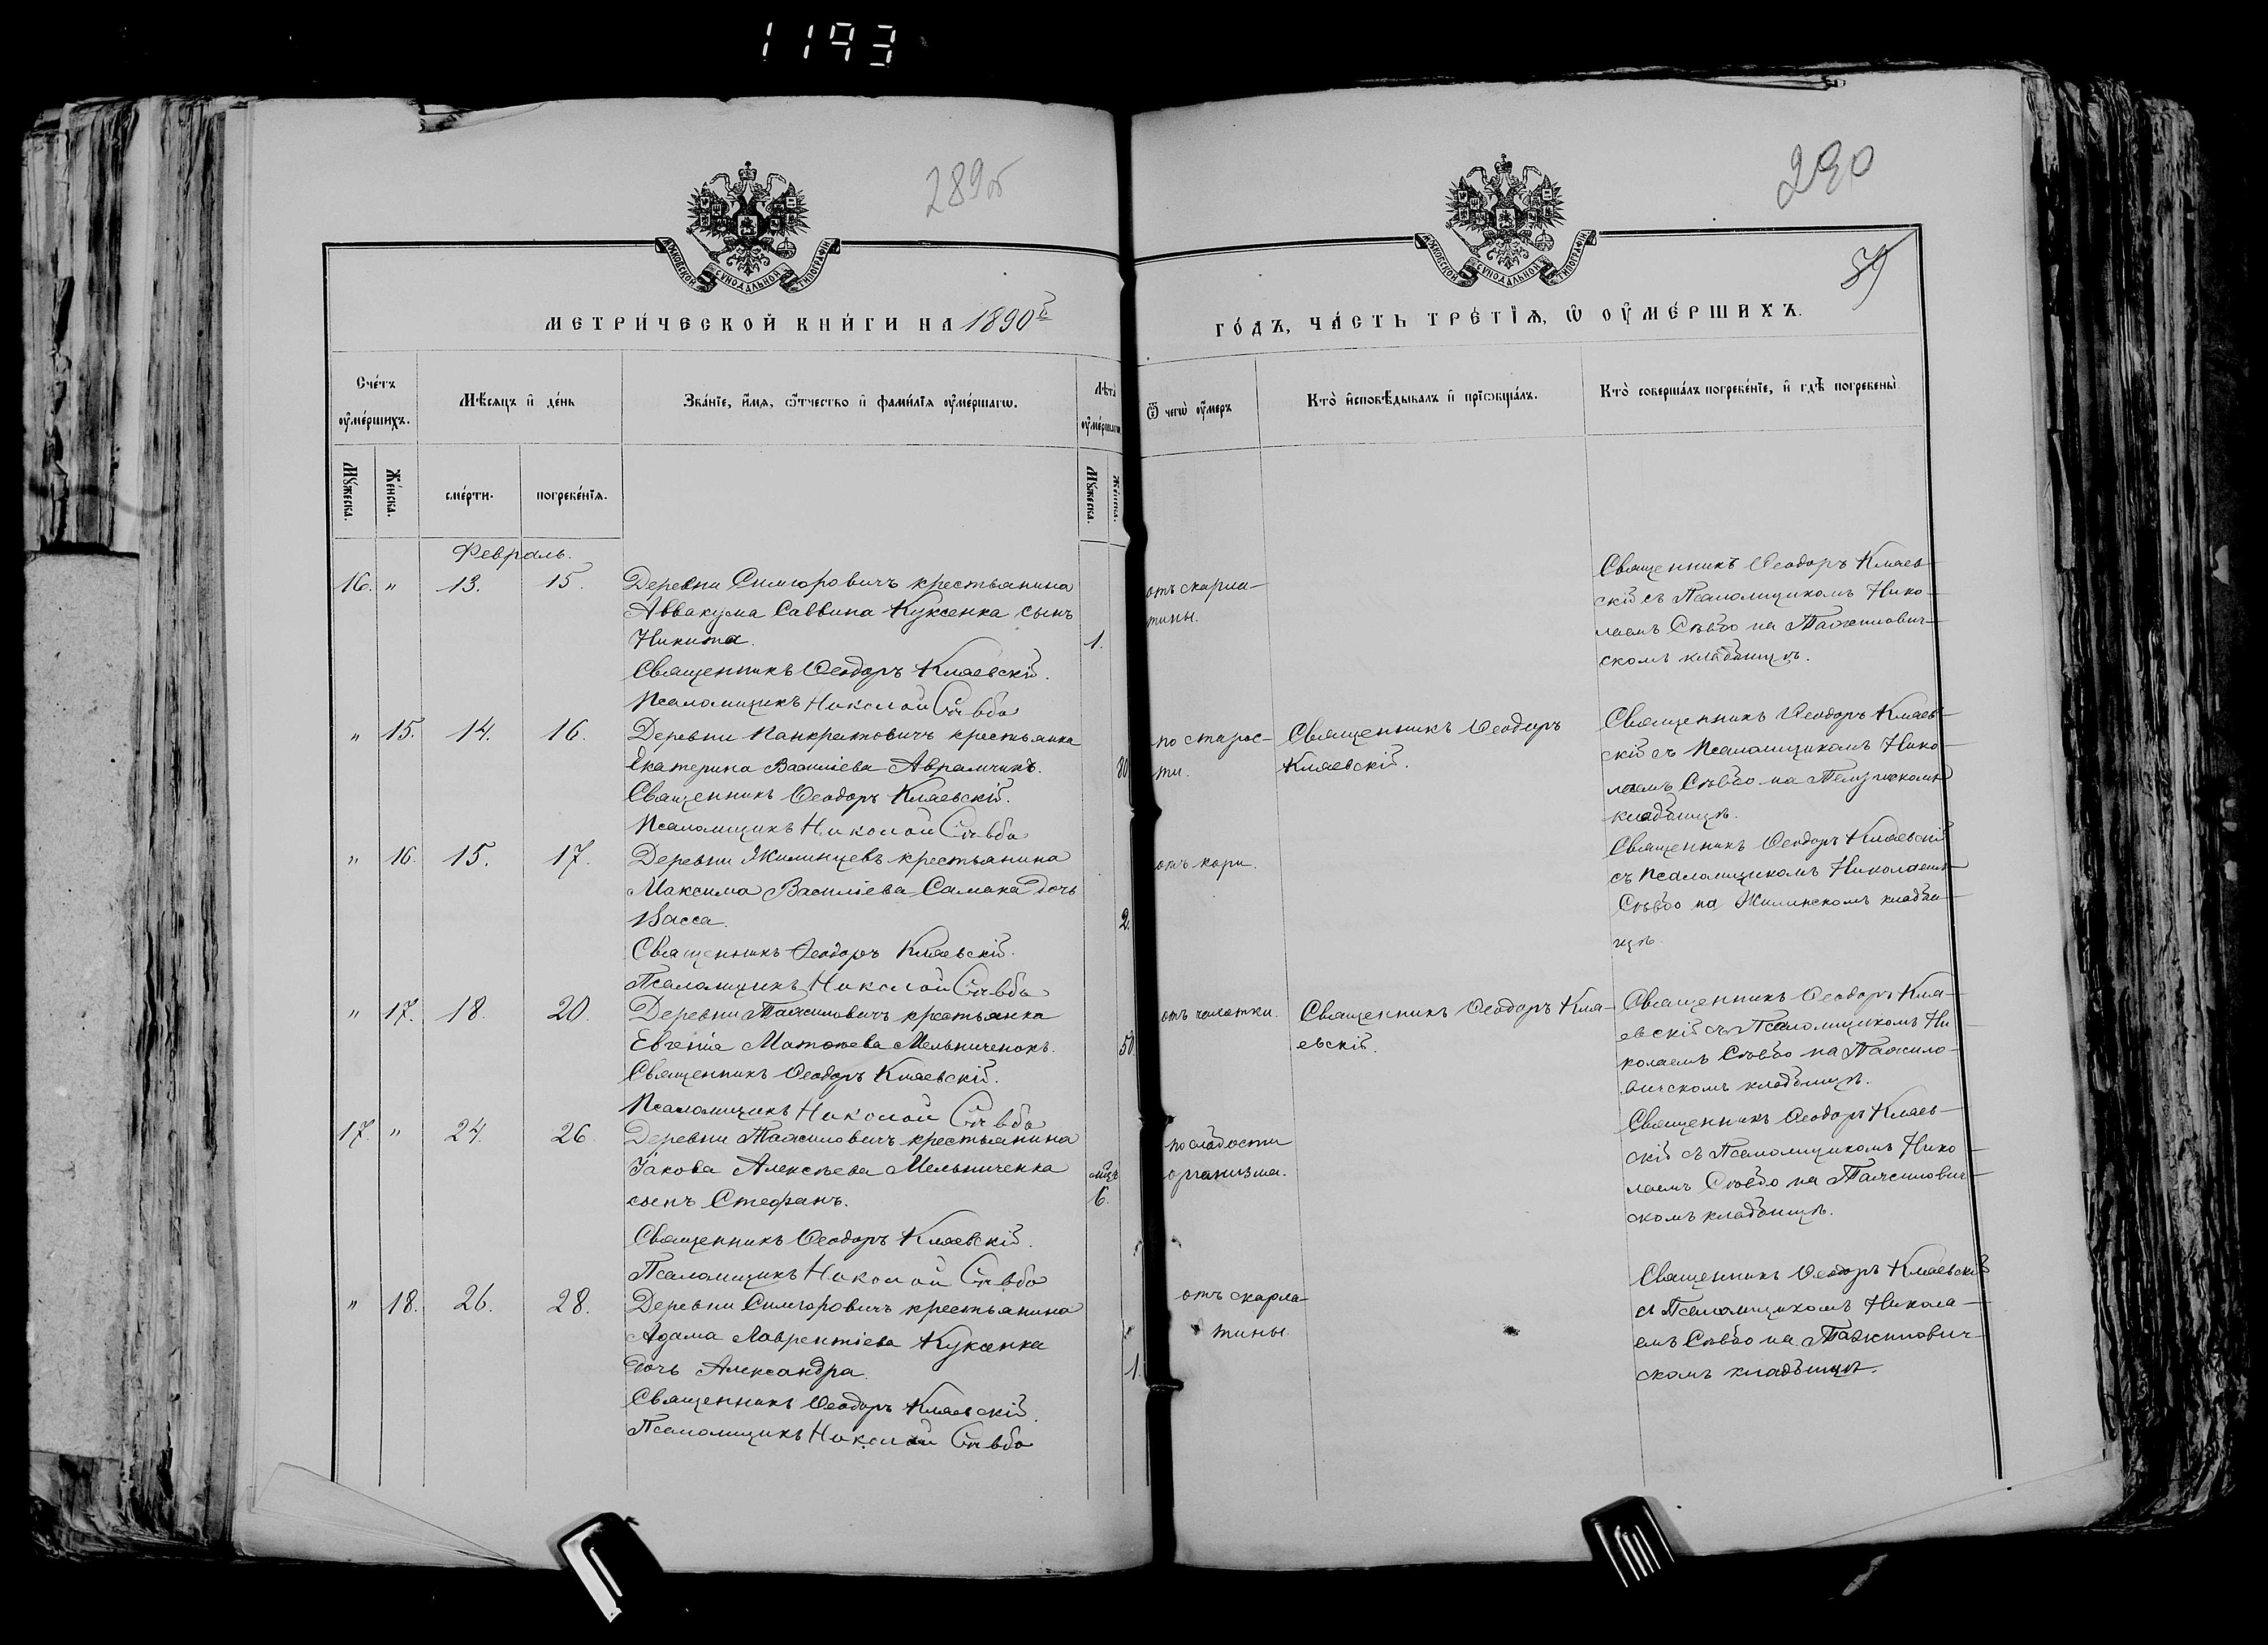 1193
289об
290
59
МОСКОВСКОЙ СУНОДАЛЬНОЙ ТИПОГРАФІИ
МОСКОВСКОЙ СУНОДАЛЬНОЙ ТИПОГРАФІИ
МЕТРИ́ЧЕСКОЙ КНИ́ГИ НА 1890й
ГО́ДЪ, ЧА́СТЬ ТРЕ́ТІѦ, Ѡ ОУ҆МЕ́РШИХЪ.
Сче́тъ оу҆ме́ршихъ.
Мѣсяцъ и҆ де́нь
Зва́ніе, и҆́мя, ѻ҆́тчество и҆ фами́лїѧ оу҆ме́ршагѡ.
Лѣта̀ оу҆ме́ршагѡ.
Ѿ чегѡ̀ оу҆́меръ
Кто̀ и҆сповѣ́дывалъ и҆ прїѡбща́лъ.
Кто̀ соверша́лъ погребе́нїе, и҆ гдѣ̀ погребены̀.
Мꙋ́жеска.
Же́нска.
сме́рти.
погребе́нїѧ.
Мꙋ́жеска.
Же́нска.
Февраль.
16. " 13. 15.
Деревни Симгоровичъ крестьянина
Аввакума Саввина Куксенка сынъ
Никита. 1.
Священникъ Ѳеодоръ Кляевскій.
Псаломщикъ Николай Савбо
отъ скарла-
тины.
Священникъ Ѳеодоръ Кляев-
скій съ Псаломщикомъ Нико-
лаемъ Савбо на Тажилович-
скомъ кладбищѣ.
" 15. 14. 16.
Деревни Панкратовичъ крестьянка
Екатерина Василіева Аврамчикъ. 80
Священникъ Ѳеодоръ Кляевскій.
Псаломщикъ Николай Савбо
по старос-
ти.
Священникъ Ѳеодоръ
Кляевскій.
Священникъ Ѳеодоръ Кляев-
скій съ Псаломщикомъ Нико-
лаемъ Савбо на
кладбищѣ.
" 16. 15. 17.
Деревни Жилинцевъ крестьянина
Максима Василіева Самака дочь
Васса. 2.
Священникъ Ѳеодоръ Кляевскій.
Псаломщикъ Николай Савбо
отъ кори.
Священникъ Ѳеодоръ Кляевскій
съ Псаломщикомъ Николаемъ
Савбо на Жилинскомъ кладби-
щѣ.
" 17. 18. 20.
Деревни Тажиловичъ крестьянка
Евгенія Матѳеева Мельниченокъ. 50.
Священникъ Ѳеодоръ Кляевскій.
Псаломщикъ Николай Савбо
отъ чахотки.
Священникъ Ѳеодоръ Кля-
евскій.
Священникъ Ѳеодоръ Кля-
евскій съ Псаломщикомъ Ни-
колаемъ Савбо на Тажило-
вичскомъ кладбищѣ.
17. " 24. 26.
Деревни Тажиловичъ крестьянина
Іакова Алексѣева Мельниченка
сынъ Стефанъ. мѣц. 6.
Священникъ Ѳеодоръ Кляевскій.
Псаломщикъ Николай Савбо
по слабости
организма.
Священникъ Ѳеодоръ Кляев-
скій съ Псаломщикомъ Нико-
лаемъ Савбо на Тажилович-
скомъ кладбищѣ.
" 18. 26. 28.
Деревни Симгоровичъ крестьянина
Адама Лаврентіева Куксенка
дочь Александра. 1.
Священникъ Ѳеодоръ Кляевскій.
Псаломщикъ Николай Савбо
отъ скарла-
тины.
Священникъ Ѳеодоръ Кляевскій
съ Псаломщикомъ Никола-
емъ Савбо на Тажилович-
скомъ кладбищѣ.